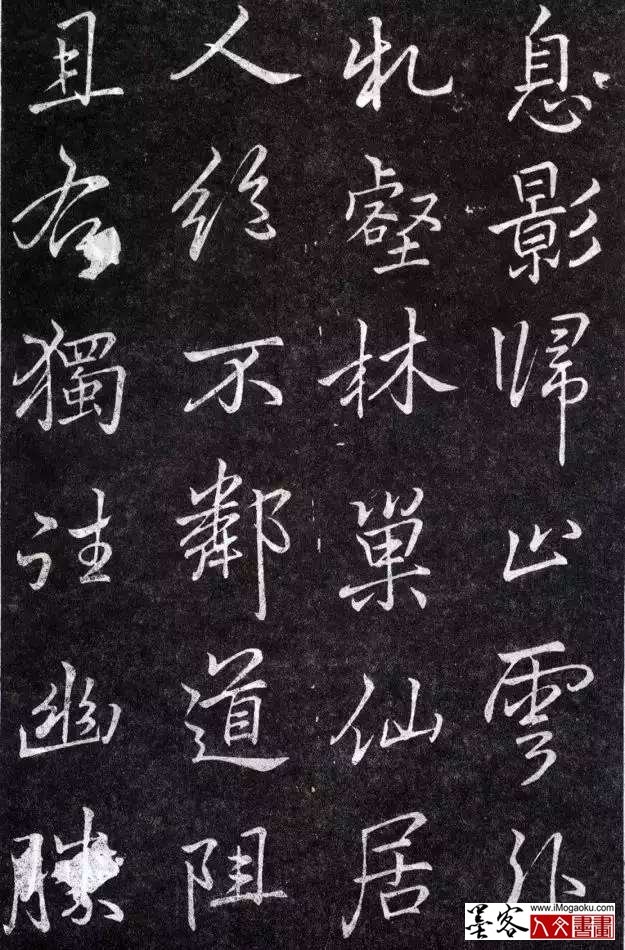 息影歸山雲
壑林巢仙居
人絶不鄰道阻
且獨往幽勝
墨客
www.iMogaoku.com
人文書畫